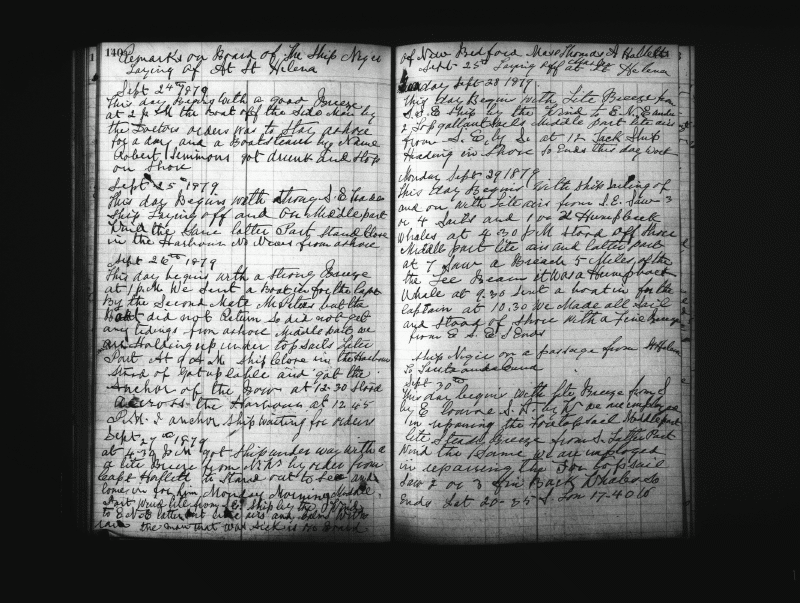 140
Remarks on Board of the Ship Niger
Laying of At St Helena
Sept 24th 1879
This day Begins With a good Breeze
at 2 P M the Boat off the Side Man by
the Doctors orders was to Stay ashore
for a day and a Boatsteerer by Name
Robert Simmons got drunk and Stop
on Shore
Sept 25 1879
This day Begins with Strong S.E.
Ship Laying off and on Middle part
Wind the Same latter Part Stand Close
in the Harbour No News from ashore
Sept 26th 1879
This day begins with a Strong Breeze
at 1 P.M We Sent a Boat in for the Capt
By the Second Mate but the
Boat did not Return So did not get
any tidings from ashore Middle part we
are Holding up under topsails Later
Part At 9 A M Ship Close in the Harbour
Stood of got up Cable and got the
Anchor of the Bow at 12-30 Stood
Across the Harbour at 12 45
anchor Ship waiting for orders
Sept 27th 1879
at 4.30 P M got Ship under way with a
a lite Breeze from by order from
Capt Hallett to Stand out to Sea and
Come in for him Monday Morning Middle
Part Wind lite from S.E. Ship by the Wind
to E N E latter part lite airs and Calm
the man that was Sick is on Board
of New Bedford Mass Thomas A Hallett
Sept 25th Laying off at St Helena
Sunday Sept 28 1879
This day Begun with Lite Breeze from
S.S.E Ship by the Wind to E. N. E under
2 Topgallant Sails Middle part lite airs
from S. E. by S. at 12 Tack Ship
Heading in Shore So Ends this day Work
Monday Sept 29 1879
This day Begins With Ship Laying of
and on with lite airs from S.E. Saw 3
or 4 Sails and 1 or 2 Humpback
Whales at 4.30 P M Stood off Shore
Middle part lite airs and latter part
at 7 Saw a Breach 5 Miles of the
the Lee Beam it Was a Humpback
Whale at 9.30 Sent a boat in for the
Captain at 10.30 We Made all Sail
and Stood of Shore with a Fine Breeze
from E S. E So Ends
Ship Niger on a passage from St Helena
to
Sept 30th
This day begins with lite Breeze from S
by E Course S. W. by W we are employed
in repairing the Foretopsail Middle part
lite Steady Breeze from S. Latter Part
Wind the Same we are imployed
in repairing the Fore topsail
Saw 2 or 3 Fin Back Whales So
Ends Lat 20-35 S. Lon 17-40 W